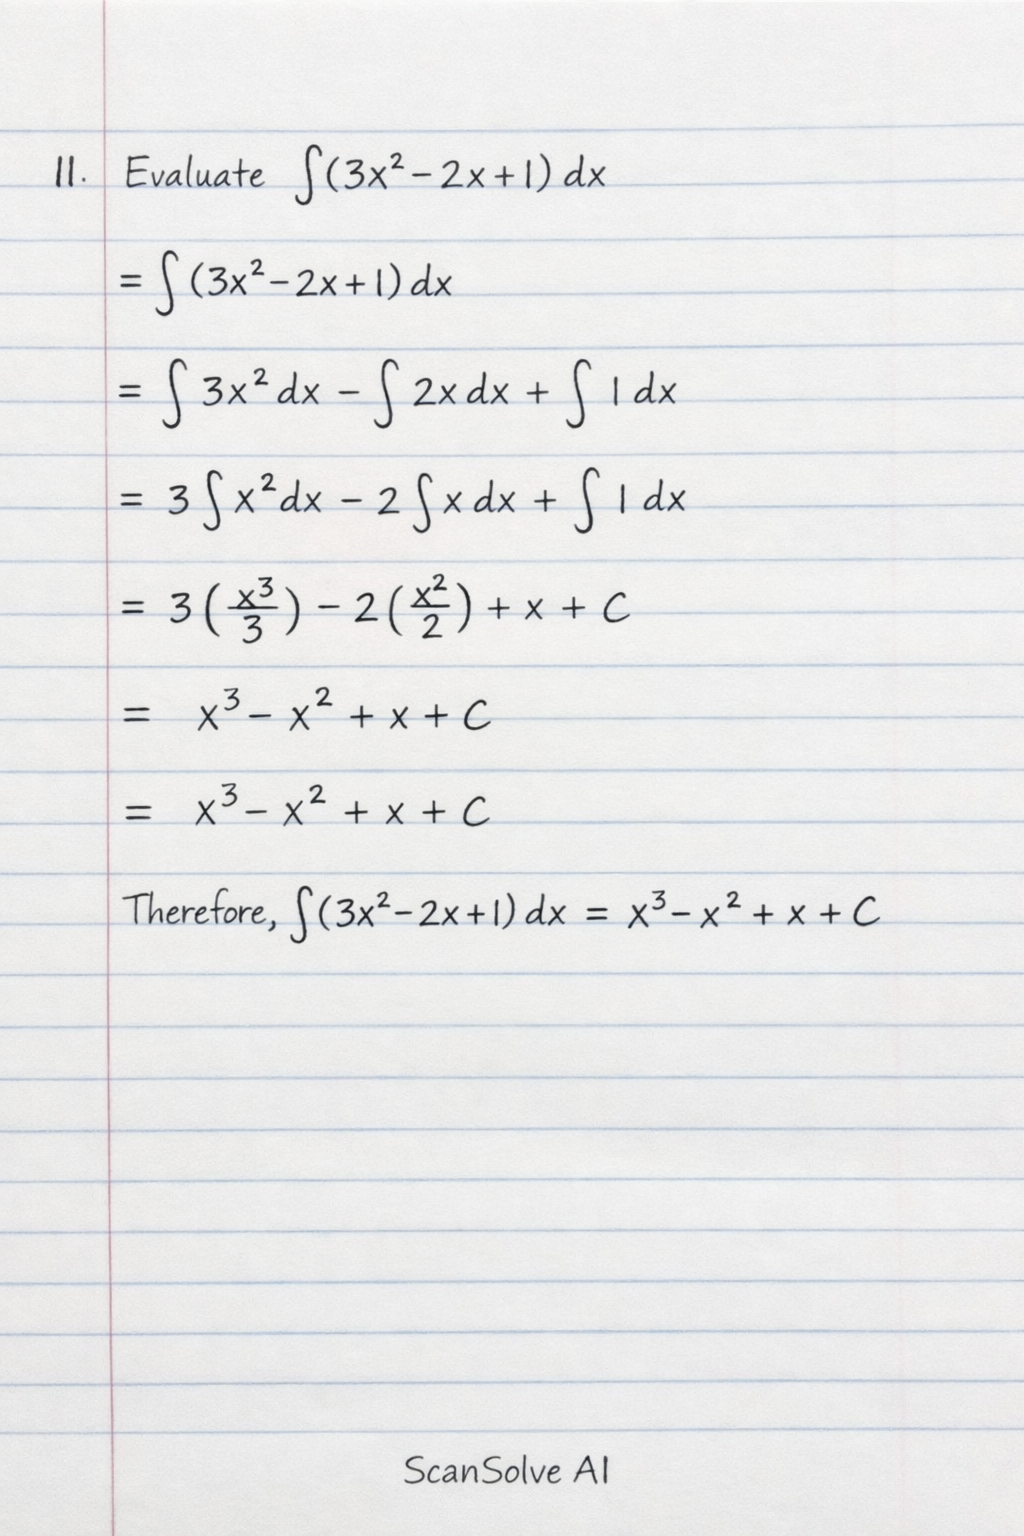 11. Evaluate ∫(3x² − 2x + 1) dx
= ∫(3x² − 2x + 1) dx
= ∫ 3x² dx − ∫ 2x dx + ∫ 1 dx
= 3 ∫ x² dx − 2 ∫ x dx + ∫ 1 dx
= 3 (x³/3) − 2 (x²/2) + x + C
= x³ − x² + x + C
= x³ − x² + x + C
Therefore, ∫(3x² − 2x + 1) dx = x³ − x² + x + C
ScanSolve AI